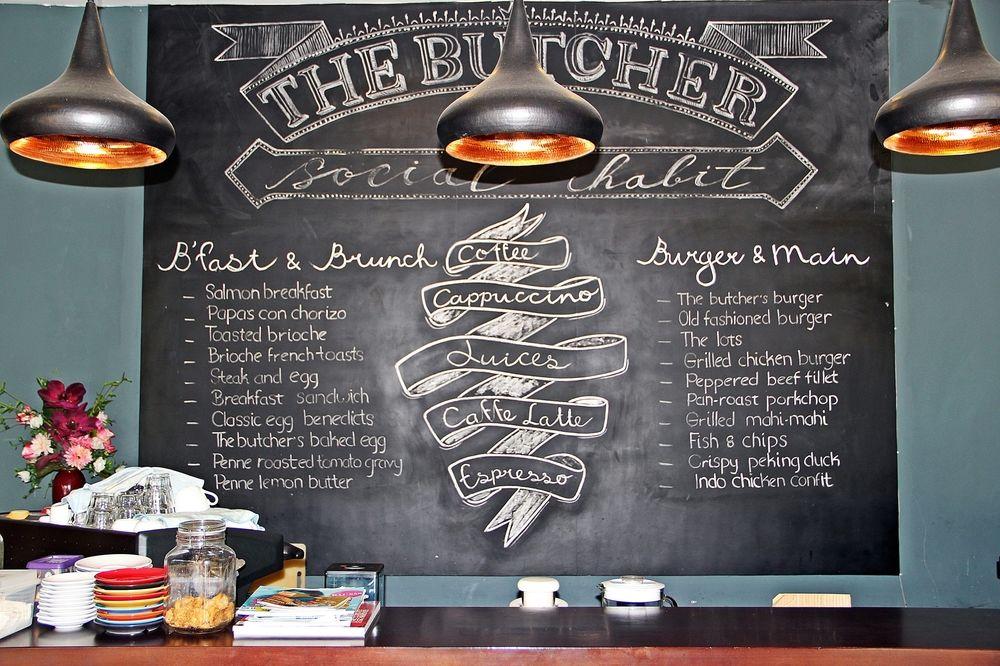 THE BUTCHER
social habit
B'fast & Brunch
– Salmon breakfast
– Papas con chorizo
– Toasted brioche
– Brioche french-toasts
– Steak and egg
– Breakfast sandwich
– Classic egg benedicts
– The butcher's baked egg
– Penne roasted tomato gravy
– Penne lemon butter
Coffee
Cappuccino
Juices
Caffe Latte
Espresso
Burger & Main
– The butcher's burger
– Old fashioned burger
– The lots
– Grilled chicken burger
– Peppered beef fillet
– Pan-roast porkchop
– Grilled mahi-mahi
– Fish & chips
– Crispy peking duck
– Indo chicken confit